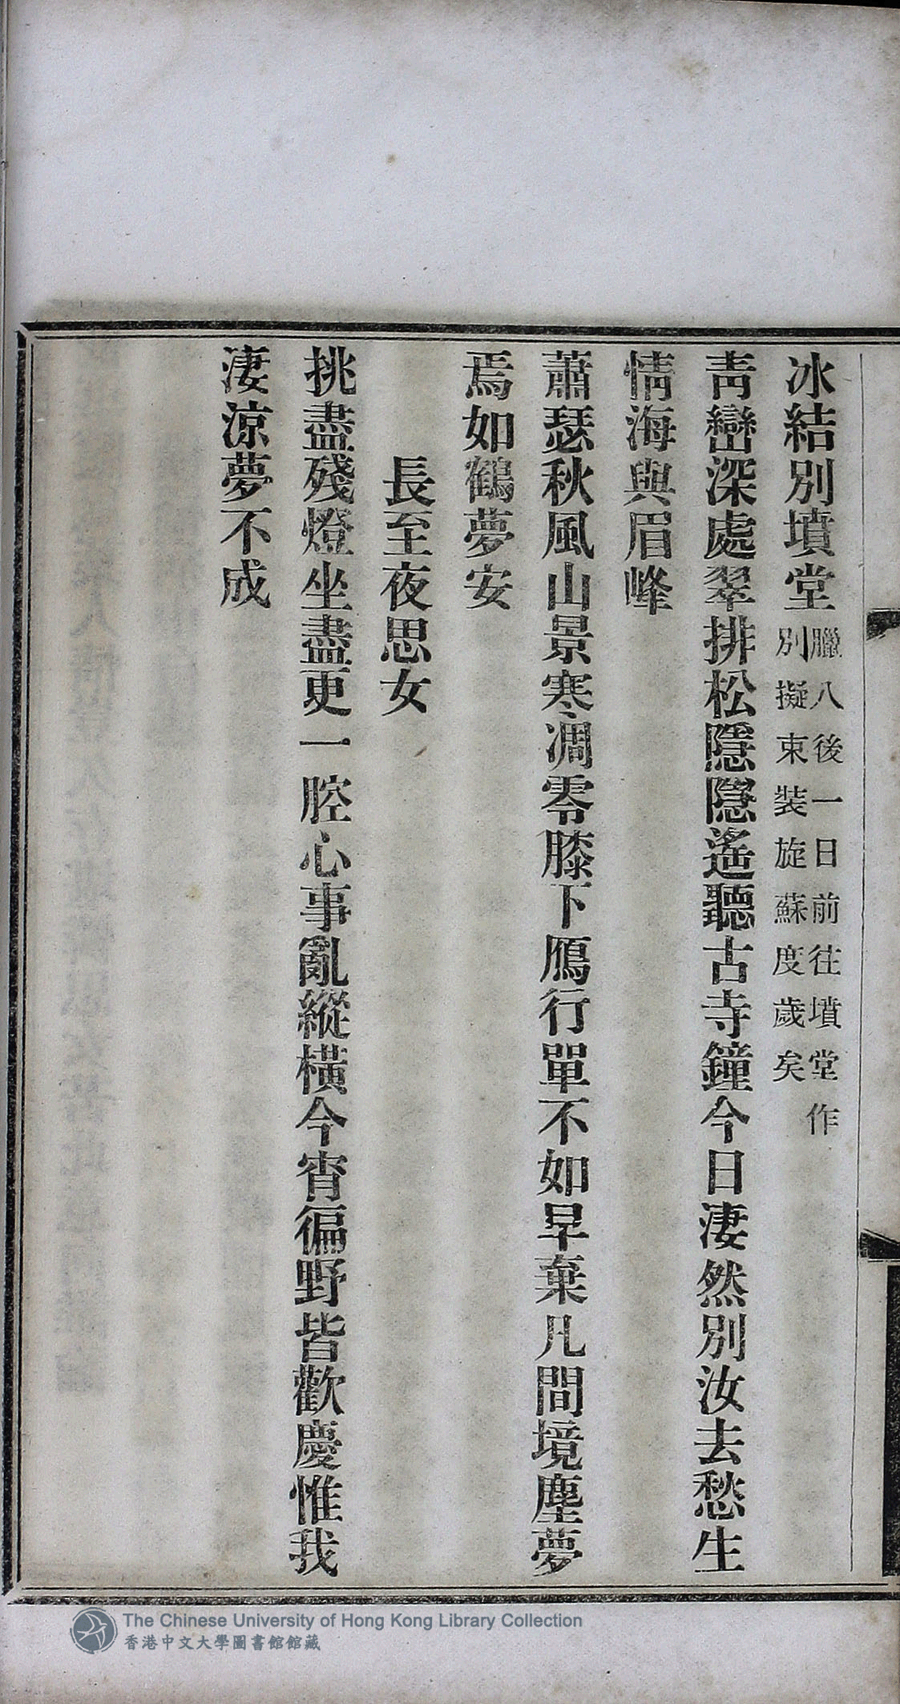 冰結別墳堂臘八後一日前往墳堂作
別擬束裝旋蘇度歲矣
靑巒深處翠排松隱隱遙聽古寺鐘今日淒然別汝去愁生
情海與眉峰
蕭瑟秋風山景寒凋零膝下鴈行單不如早棄凡間境塵夢
焉如鶴夢安
長至夜思女
挑盡殘燈坐盡更一腔心事亂縱橫今宵徧野皆歡慶惟我
淒涼夢不成
The Chinese University of Hong Kong Library Collection
香港中文大學圖書館館藏